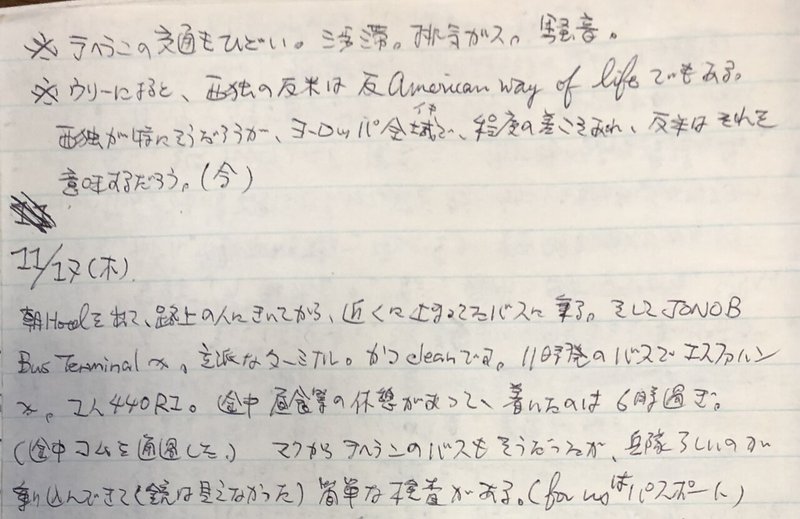 ※ テヘランの交通もひどい。渋滞。排気ガス。騒音。
※ ウリーによると、西独の反米は反American way of lifeでもある。
西独が特にそうだろうが、ヨーロッパ全域イキで、程度の差こそあれ、反米はそれを
意味するだろう。(今)
11/17(木)
朝Hotelを出て、路上の人にきいてから、近くに止まってたバスに乗る。そしてJONOB
Bus Terminalへ。立派なターミナル。かつcleanです。11時発のバスでエスファハン
へ。1人440RI。途中昼食等の休憩があって、着いたのは6時過ぎ。
(途中コムを通過した。) マクからテヘランのバスもそうだったが、兵隊らしいのが
乗り込んできて(銃は見えなかった)簡単な検査がある。(for usはパスポート)